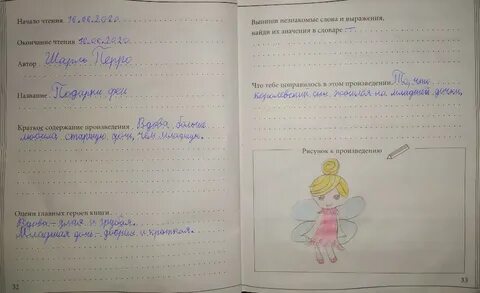 Начало чтения 10.06.2020
Окончание чтения 10.06.2020
Автор Шарль Перро
Название Подарки феи
Краткое содержание произведения Вдова больше
любила старшую дочь, чем младшую.
Оцени главных героев книги
Вдова - злая и грубая.
Младшая дочь - добрая и кроткая.
32
Выпиши незнакомые слова и выражения,
найди их значения в словаре
Что тебе понравилось в этом произведении То, что
королевский сын женился на младшей дочки.
Рисунок к произведению
33